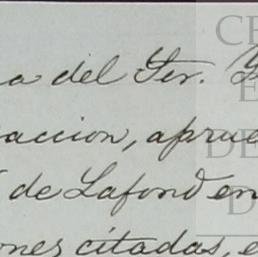 a del Ter. G
accion, aprue
de Lafond en
ones citadas, e
CE
E
DE
D